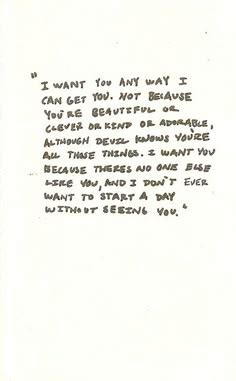 "I WANT YOU ANY WAY I
CAN GET YOU. NOT BECAUSE
YOU'RE BEAUTIFUL OR
CLEVER OR KIND OR ADORABLE,
ALTHOUGH DEVIL KNOWS YOU'RE
ALL THOSE THINGS. I WANT YOU
BECAUSE THERES NO ONE ELSE
LIKE YOU, AND I DON'T EVER
WANT TO START A DAY
WITHOUT SEEING YOU."